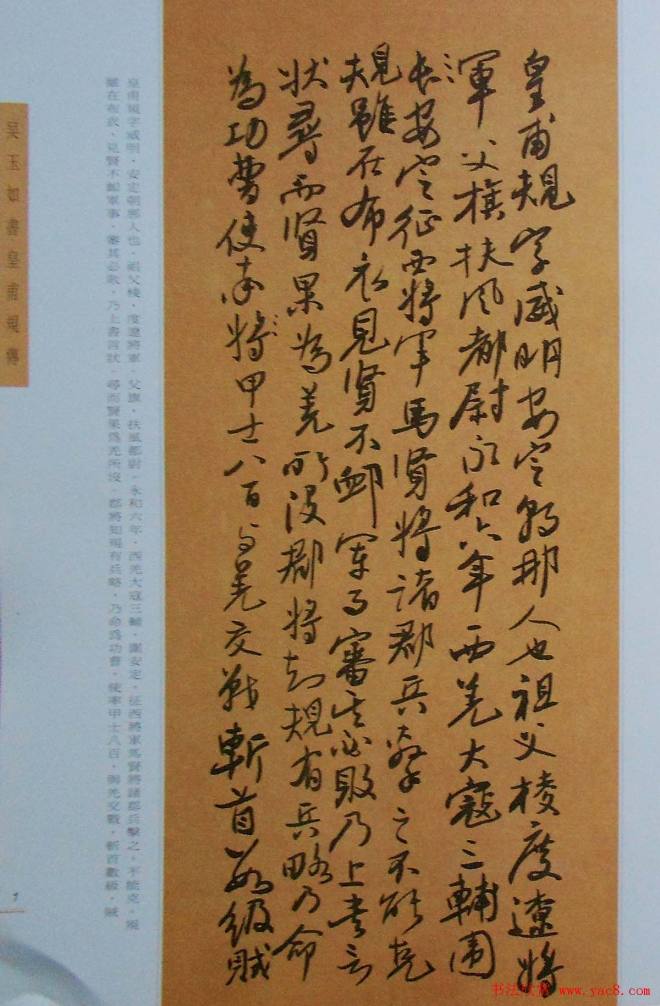 皇甫規字威明安定朝那人也祖父棱度遼將
軍父旗扶風都尉永和六年西羌大寇三輔圍
安定征西將軍馬賢將諸郡兵擊之不能克
規雖在布衣見賢不卹軍事審其必敗乃上書言
狀尋而賢果為羌所沒郡將知規有兵略乃命
為功曹使率將甲士八百与羌交戰斬首數級賊
皇甫規字威明，安定朝那人也，祖父棱，度遼將軍，父旗，扶風都尉，永和六年，西羌大寇三輔，圍安定，征西將軍馬賢將諸郡兵擊之，不能克，規
雖在布衣，見賢不卹軍事，審其必敗，乃上書言狀，尋而賢果為羌所沒，郡將知規有兵略，乃命為功曹，使率甲士八百，與羌交戰，斬首數級，賊
吳玉如書皇甫規傳
1
书法欣赏 www.yac8.com